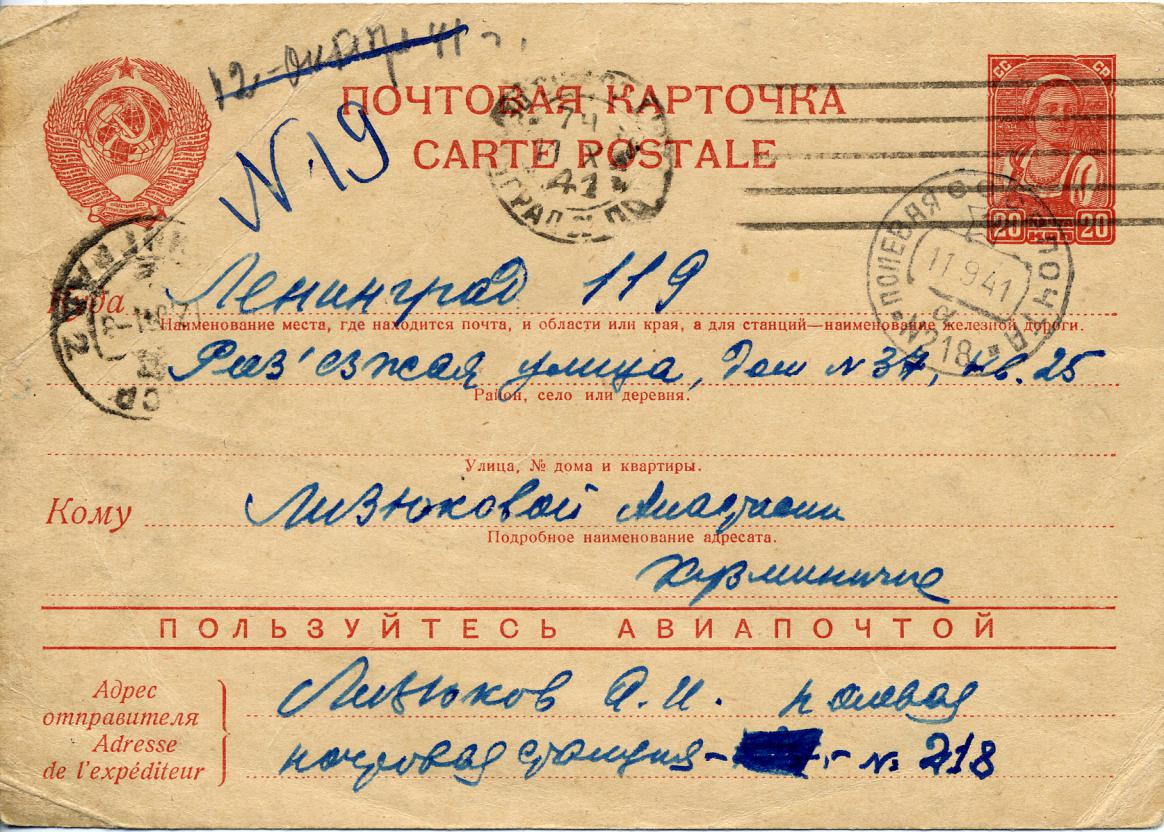 12 октября 41 г.
ПОЧТОВАЯ КАРТОЧКА
CARTE POSTALE
N 19
СС СР
20 КОП 20
ПОЛЕВАЯ ПОЧТА
11 9 41
N218
Куда Ленинград 119
Наименование места, где находится почта, и области или края, а для станций—наименование железной дороги.
Раз'езжая улица, дом N 37, кв. 25
Район, село или деревня.
Улица, № дома и квартиры.
Кому Лизюковой Анастасии
Подробное наименование адресата.
Кузьминичне
ПОЛЬЗУЙТЕСЬ АВИАПОЧТОЙ
Адрес отправителя
Adresse de l'expéditeur
Лизюков А.И. полевая
почтовая станция - № 218